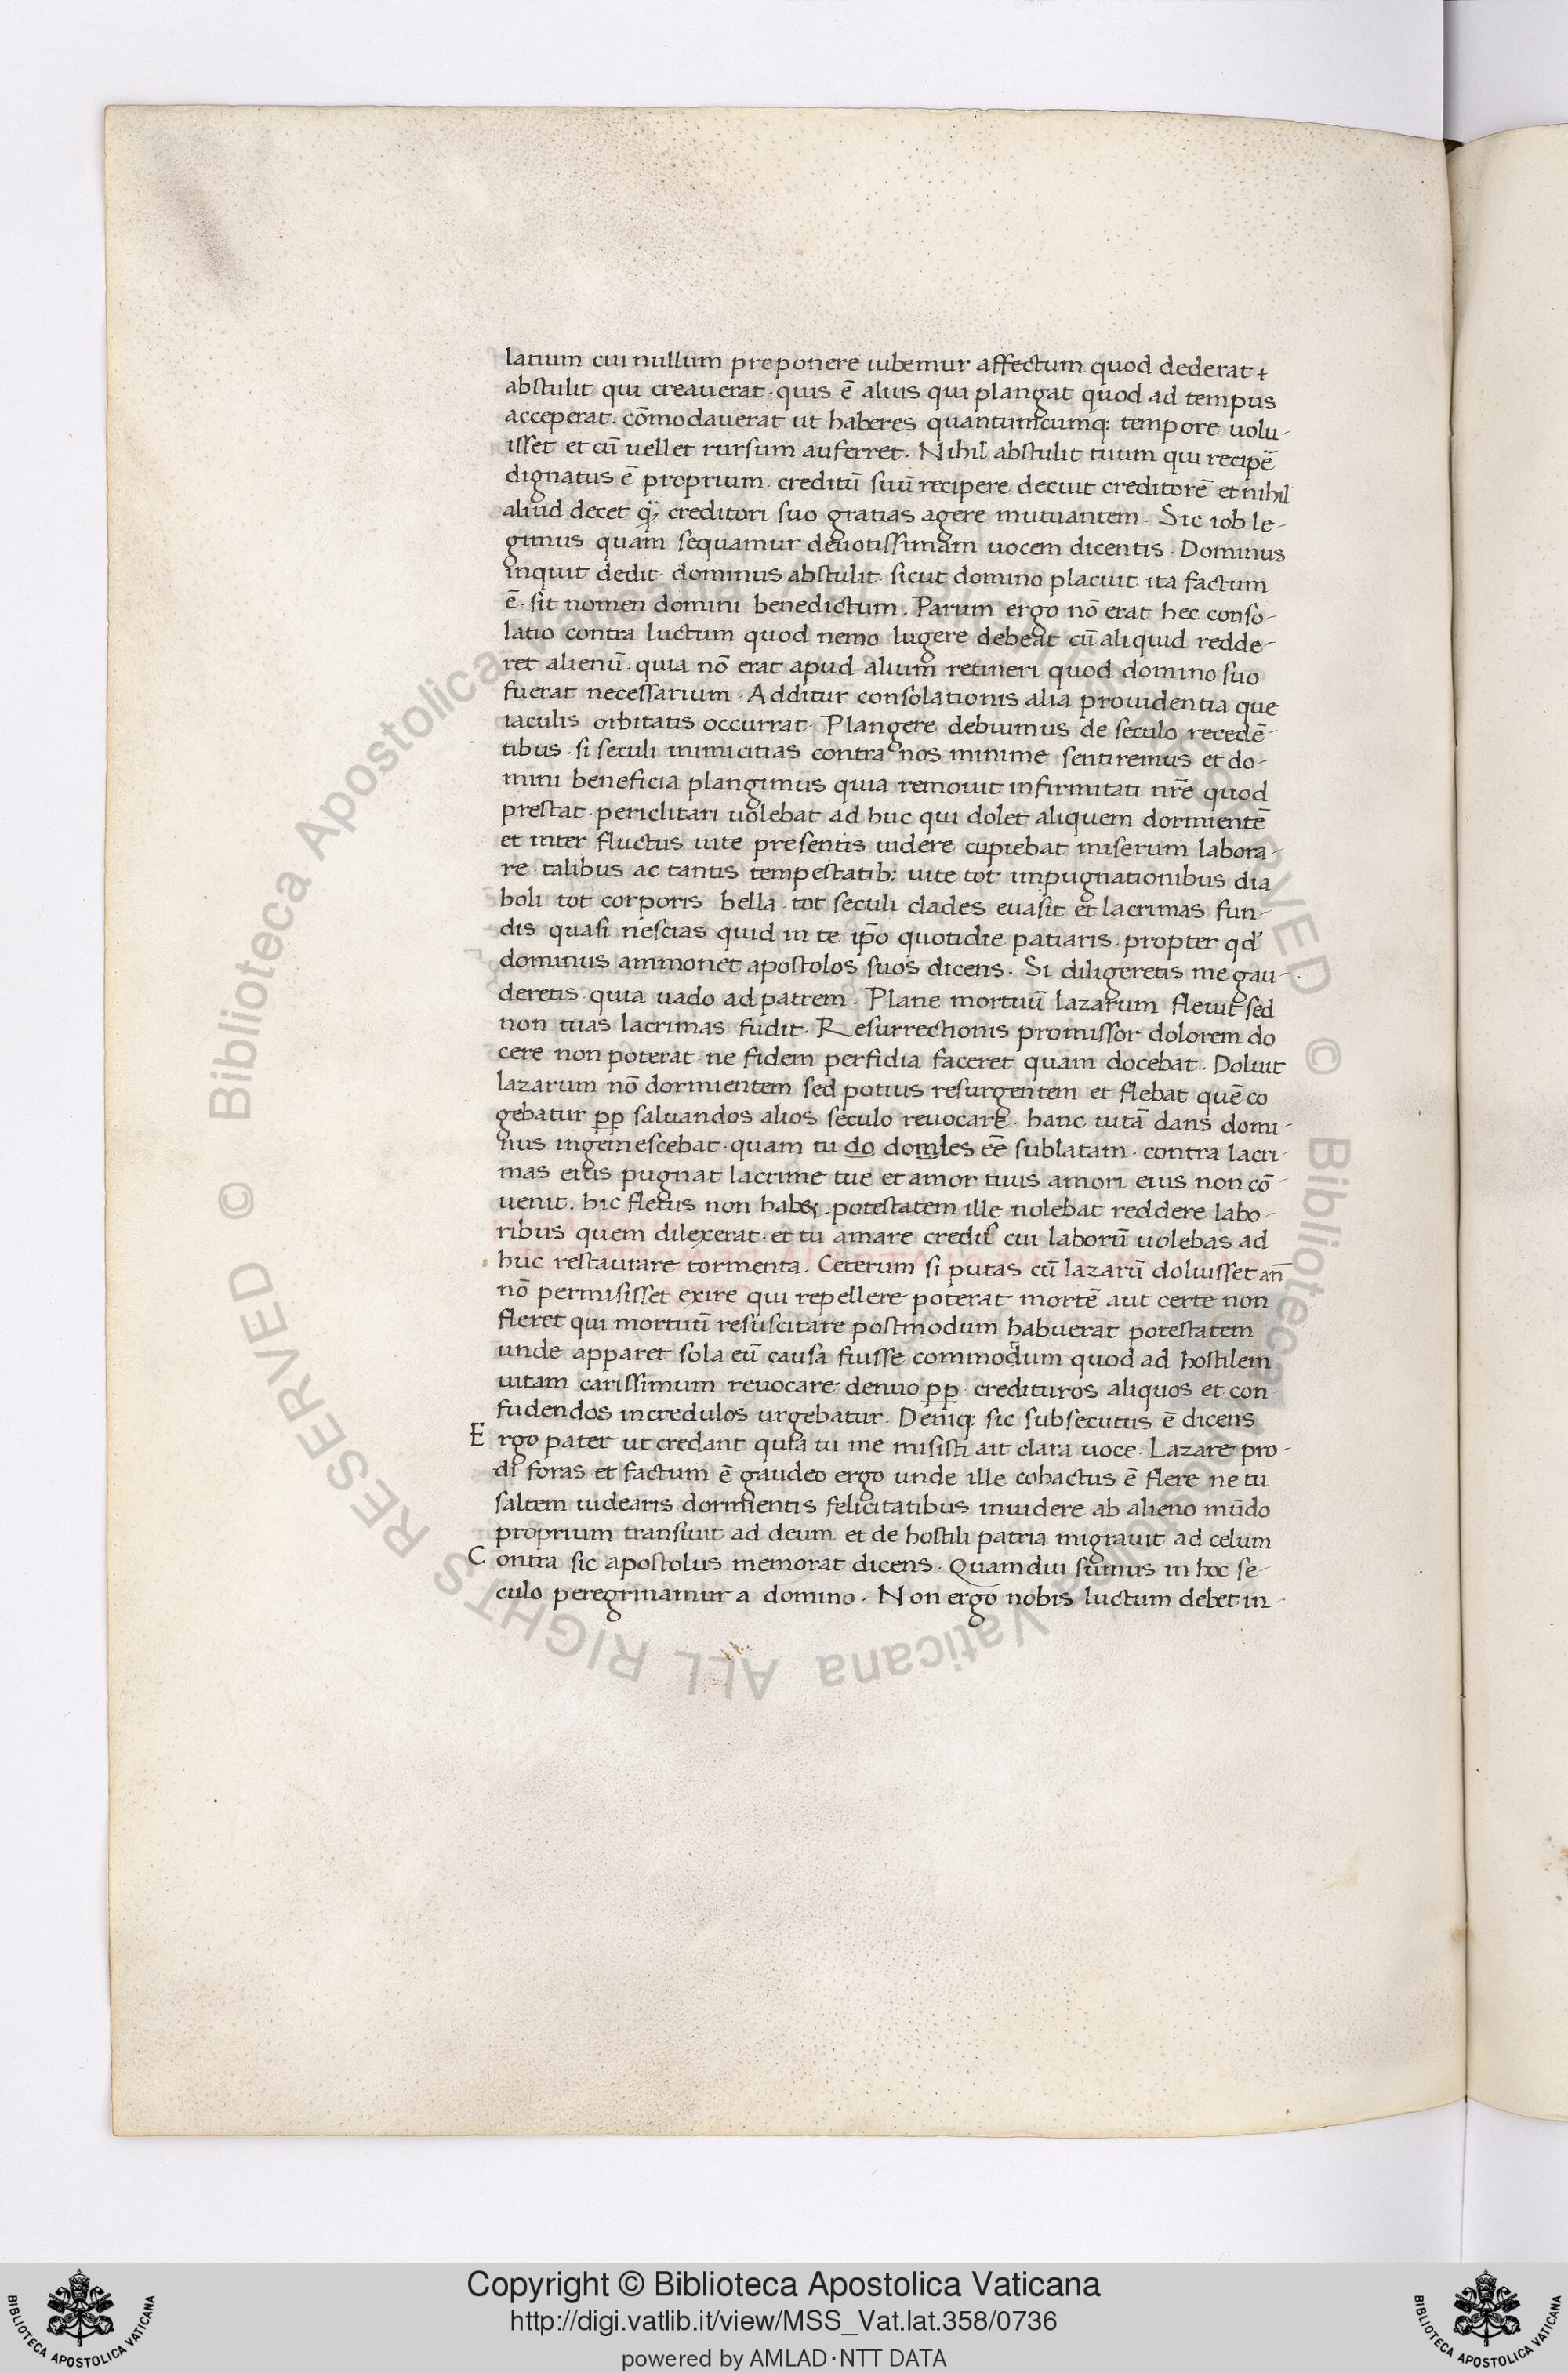 latium cui nullum preponere iubemur affectum quod dederat
abstulit qui creauerat · quis ē alius qui plangat quod ad tempus
acceperat . cōmodauerat ut haberes quantumcumq; tempore uolu-
isset et cū uellet rursum auferret . Nihil abstulit tuum qui recipē
dignatus ē proprium . creditū suū recipere decuit creditorē et nihil
aliud decet creditori suo gratias agere mutuantem . Sic iob le-
gimus quam sequamur deuotissimam uocem dicentis . Dominus
inquit dedit · dominus abstulit · sicut domino placuit ita factum
ē · sit nomen domini benedictum . Parum ergo nō erat hec conso-
latio contra luctum quod nemo lugere debeat cū aliquid redde-
ret alienū · quia nō erat apud alium retineri quod domino suo
fuerat necessarium . Additur consolationis alia prouidentia que
iaculis orbitatis occurrat · Plangere debuimus de seculo recedē-
tibus · si seculi inimicitias contra nos minime sentiremus et do-
mini beneficia plangimus quia remouit infirmitati nrē quod
prestat · periclitari uolebat ad huc qui dolet aliquem dormientē
et inter fluctus uite presentis uidere cupiebat miserum labora-
re · talibus ac tantis tempestatib: uite tot impugnationibus dia
boli tot corporis bella · tot seculi clades euasit et lacrimas fun-
dis quasi nescias quid in te ip̄o quotidie patiaris . propter qd'
dominus ammonet apostolos suos dicens . Si diligeretis me gau-
deretis · quia uado ad patrem . Plane mortuū lazarum fleuit sed
non tuas lacrimas fudit . Resurrectionis promissor dolorem do
cere non poterat ne fidem perfidia faceret quam docebat . Doluit
lazarum nō dormientem sed potius resurgentem et flebat quē co
gebatur pp saluandos alios seculo reuocare . hanc uitā dans domi-
nus ingemescebat · quam tu do domles eē sublatam · contra lacri-
mas eius pugnat lacrime tue et amor tuus amori eius non cō-
uenit . hic fletus non habet potestatem ille nolebat reddere labo-
ribus quem dilexerat · et tu amare credis cui laborū uolebas ad
huc restaurare tormenta . Ceterum si putas cū lazarū doluisset an̄
nō permisisset exire qui repellere poterat mortē aut certe non
fleret qui mortuū resuscitare postmodum habuerat potestatem
unde apparet sola eū causa fuisse commodum quod ad hostilem
uitam carissimum reuocare denuo pp credituros aliquos et con-
fudendos incredulos urgebatur . Deniq: sic subsecutus ē dicens
Ergo pater ut credant quia tu me misisti ait clara uoce . Lazare pro-
di foras et factum ē gaudeo ergo unde ille cohactus ē flere ne tu
saltem uidearis dormientis felicitatibus inuidere ab alieno mūdo
proprium transiuit ad deum et de hostili patria migrauit ad celum
Contra sic apostolus memorat dicens . Quamdiu sumus in hoc se-
culo peregrinamur a domino . Non ergo nobis luctum debet in-
© Biblioteca Apostolica Vaticana ALL RIGHTS RESERVED
Copyright © Biblioteca Apostolica Vaticana
http://digi.vatlib.it/view/MSS_Vat.lat.358/0736
powered by AMLAD·NTT DATA
BIBLIOTECA APOSTOLICA VATICANA
BIBLIOTECA APOSTOLICA VATICANA